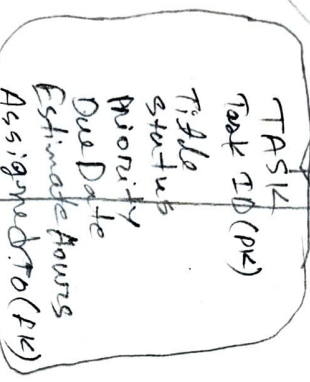 TASK
Task ID (PK)
Title
Status
Priority
Due Date
Estimate Hours
Assigned.To (FK)